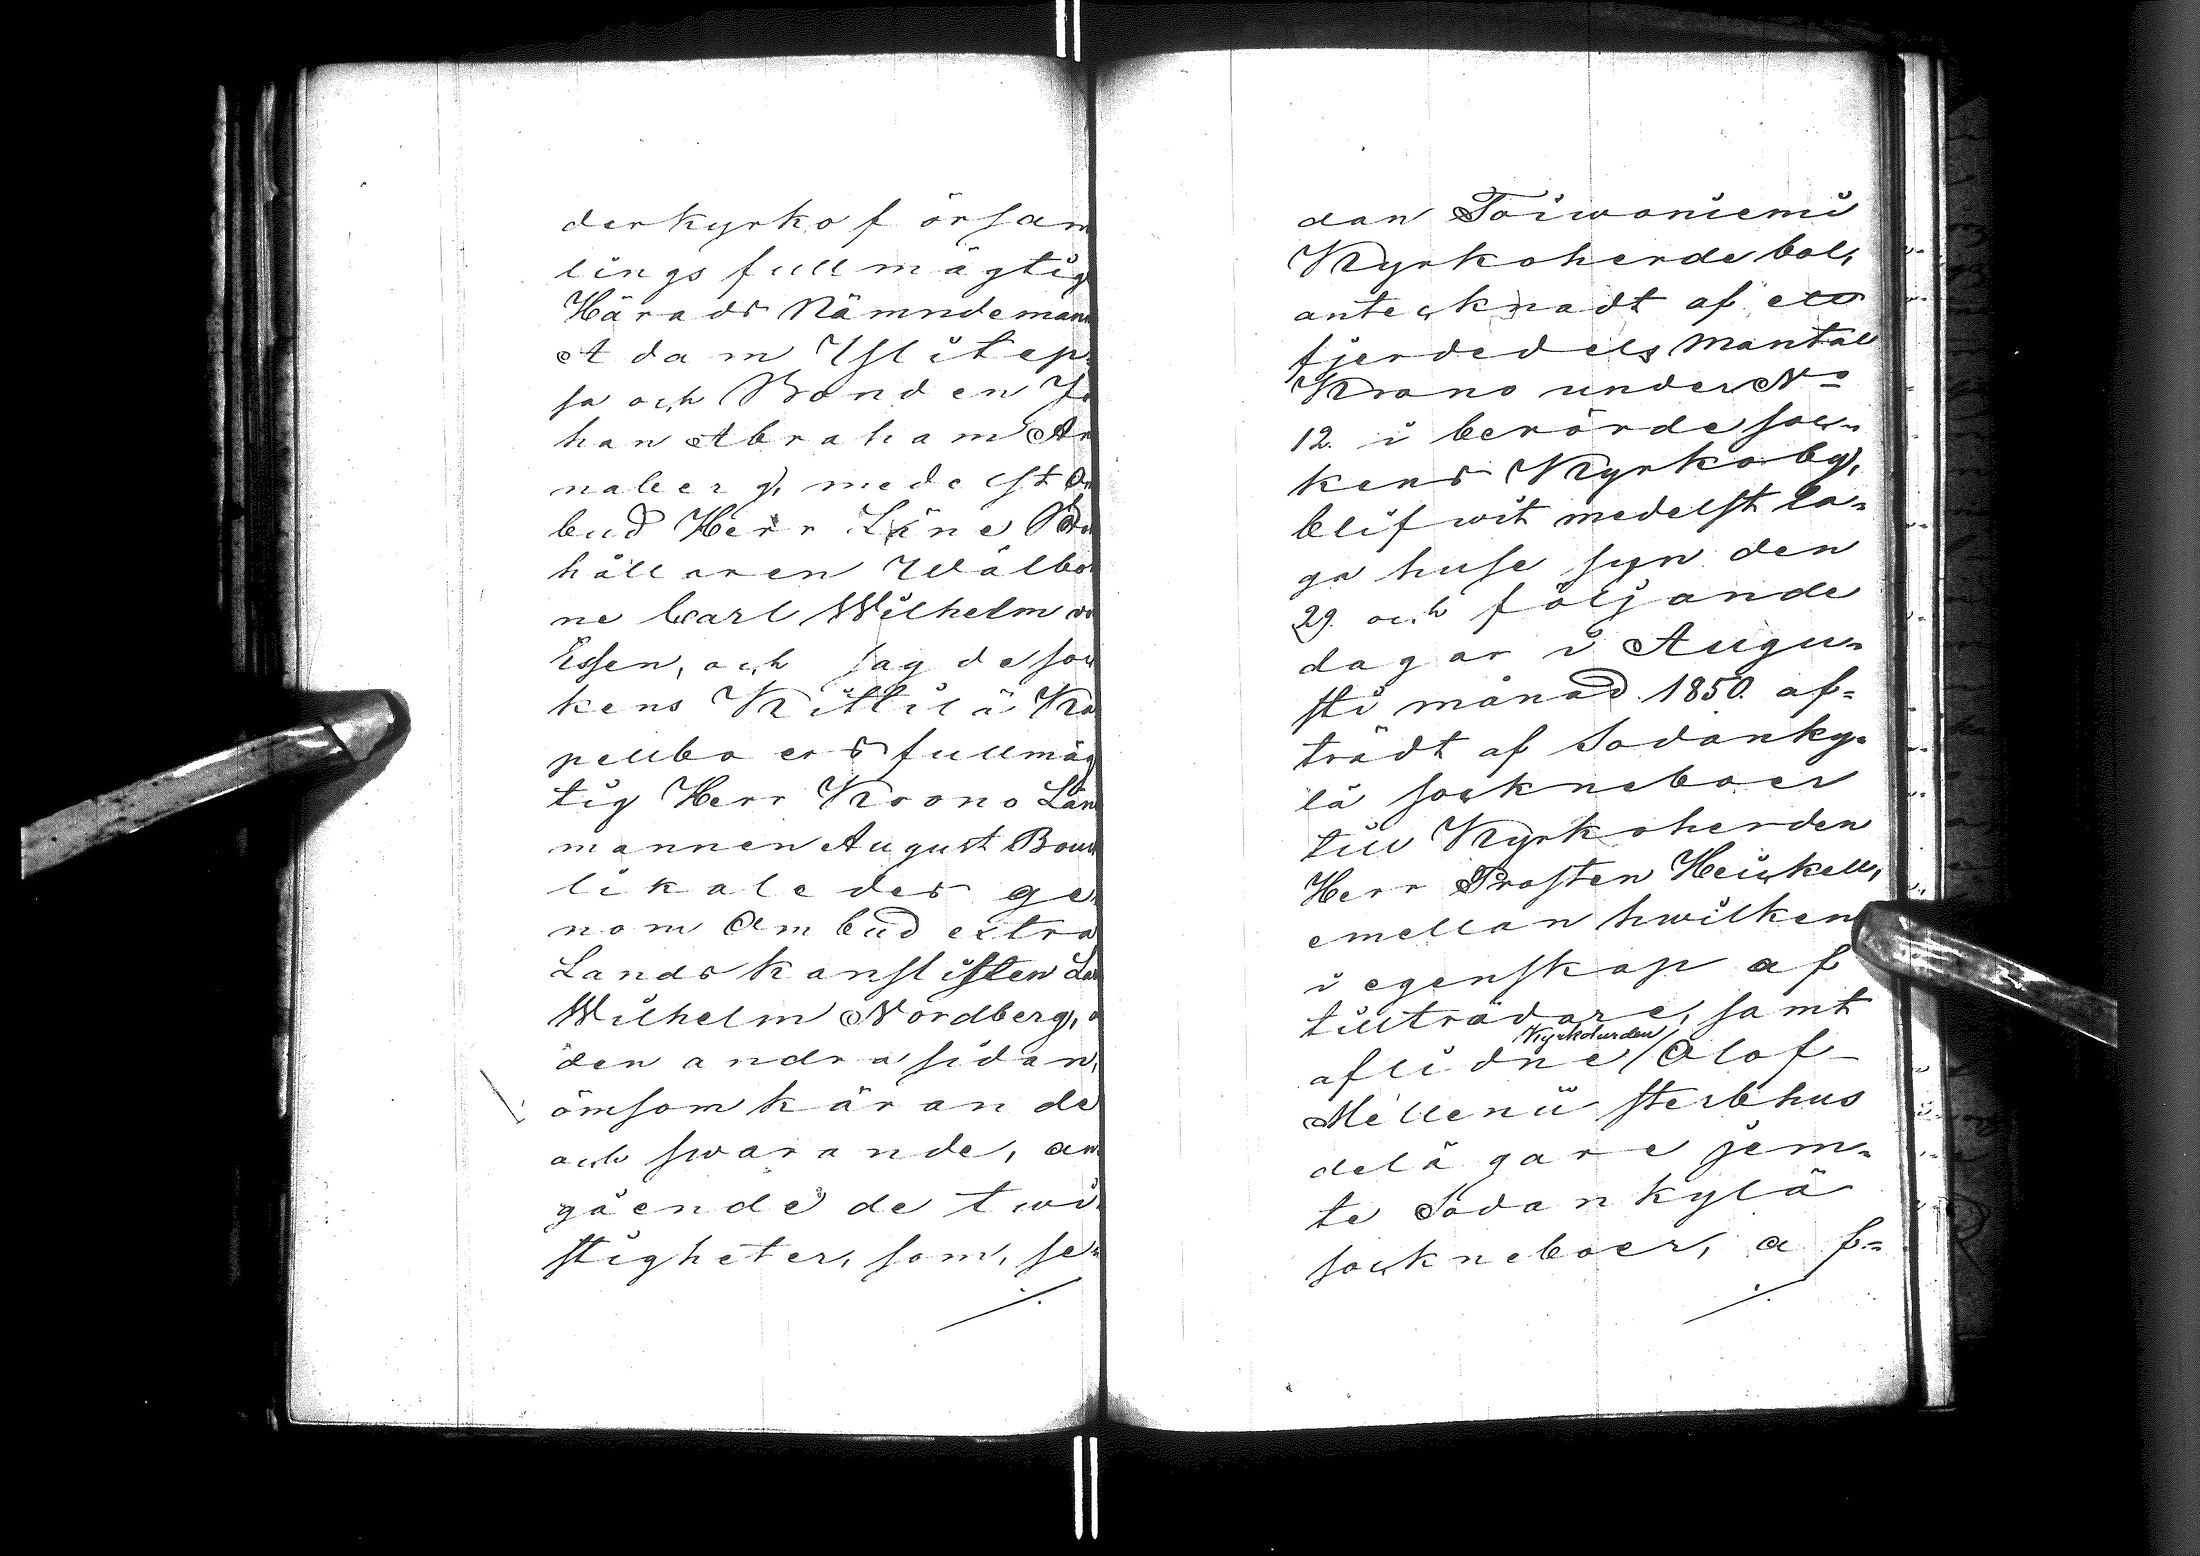 derkyrkoförsam
lings fullmägtig
Härads Nämndeman
Adam Ylitep
sa och Bonden Jo
han Abraham An
naberg, medelst Om
bud Herr Läne Bok
hållaren Wälbor
ne Carl Wilhelm von
Essen, och jag de soc
kens Kittilä Ka
pellboers fullmäg
tig Herr Krono Läns
mannen August
likaledes ge
nom Ombud extra
Landskanslisten
Wilhelm Nordberg, å
den andra sidan,
ömsom kärande
och swarande, an
gående de twi
stigheter, som, se-
dan Toiwoniemi
Kyrkoherdebol,
antecknadt af ett
fjerdedels Mantal
Krono under No
12. i berörde soc-
kens Kyrkoby,
blifwit medelst la-
ga huse syn den
29. och följande
dagar i Augu-
sti månad 1850. af-
trädt af Sodanky-
lä sockneboer
till Kyrkoherden
Herr Prosten Heickell,
emellan hwilken
i egenskap af
tillträdare, samt
Kyrkoherden
aflidne Olof
Mellenii sterbhus
delägare jem-
te Sodankylä
sockneboer, af-